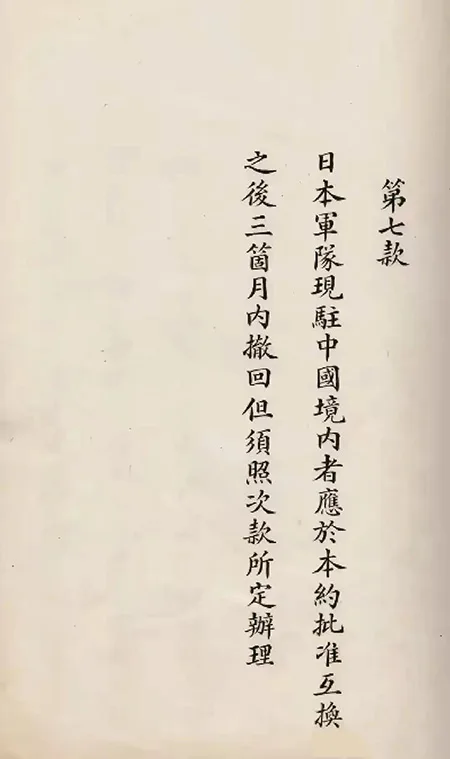 第七款
日本軍隊現駐中國境內者應於本約批准互換
之後三箇月內撤回但須照次款所定辦理